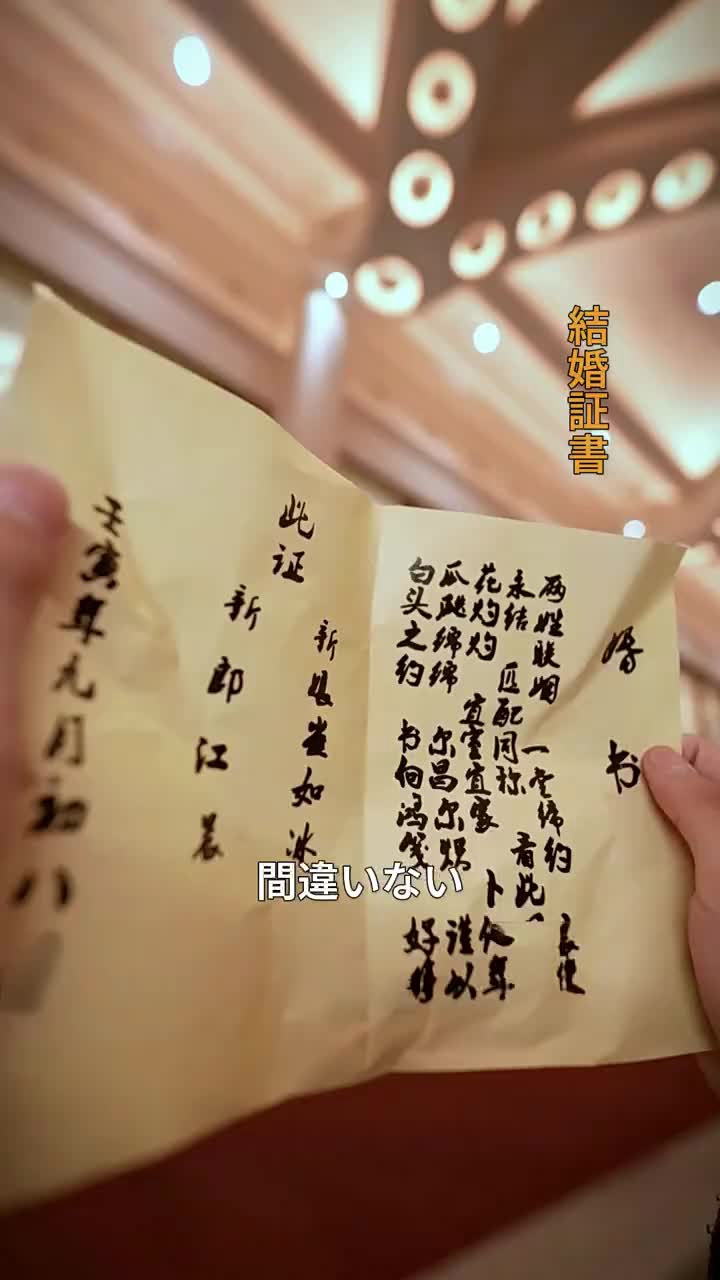 結婚証書
婚书
两姓联姻 一堂缔约 良缘
永结 匹配同称 看此
花灼灼 宜室宜家 卜他年
瓜瓞绵绵 尔昌尔炽 谨以
白头之约 书向鸿笺 好将
此证
新娘 如冰
新郎 江
壬寅年元月初八
間違いない